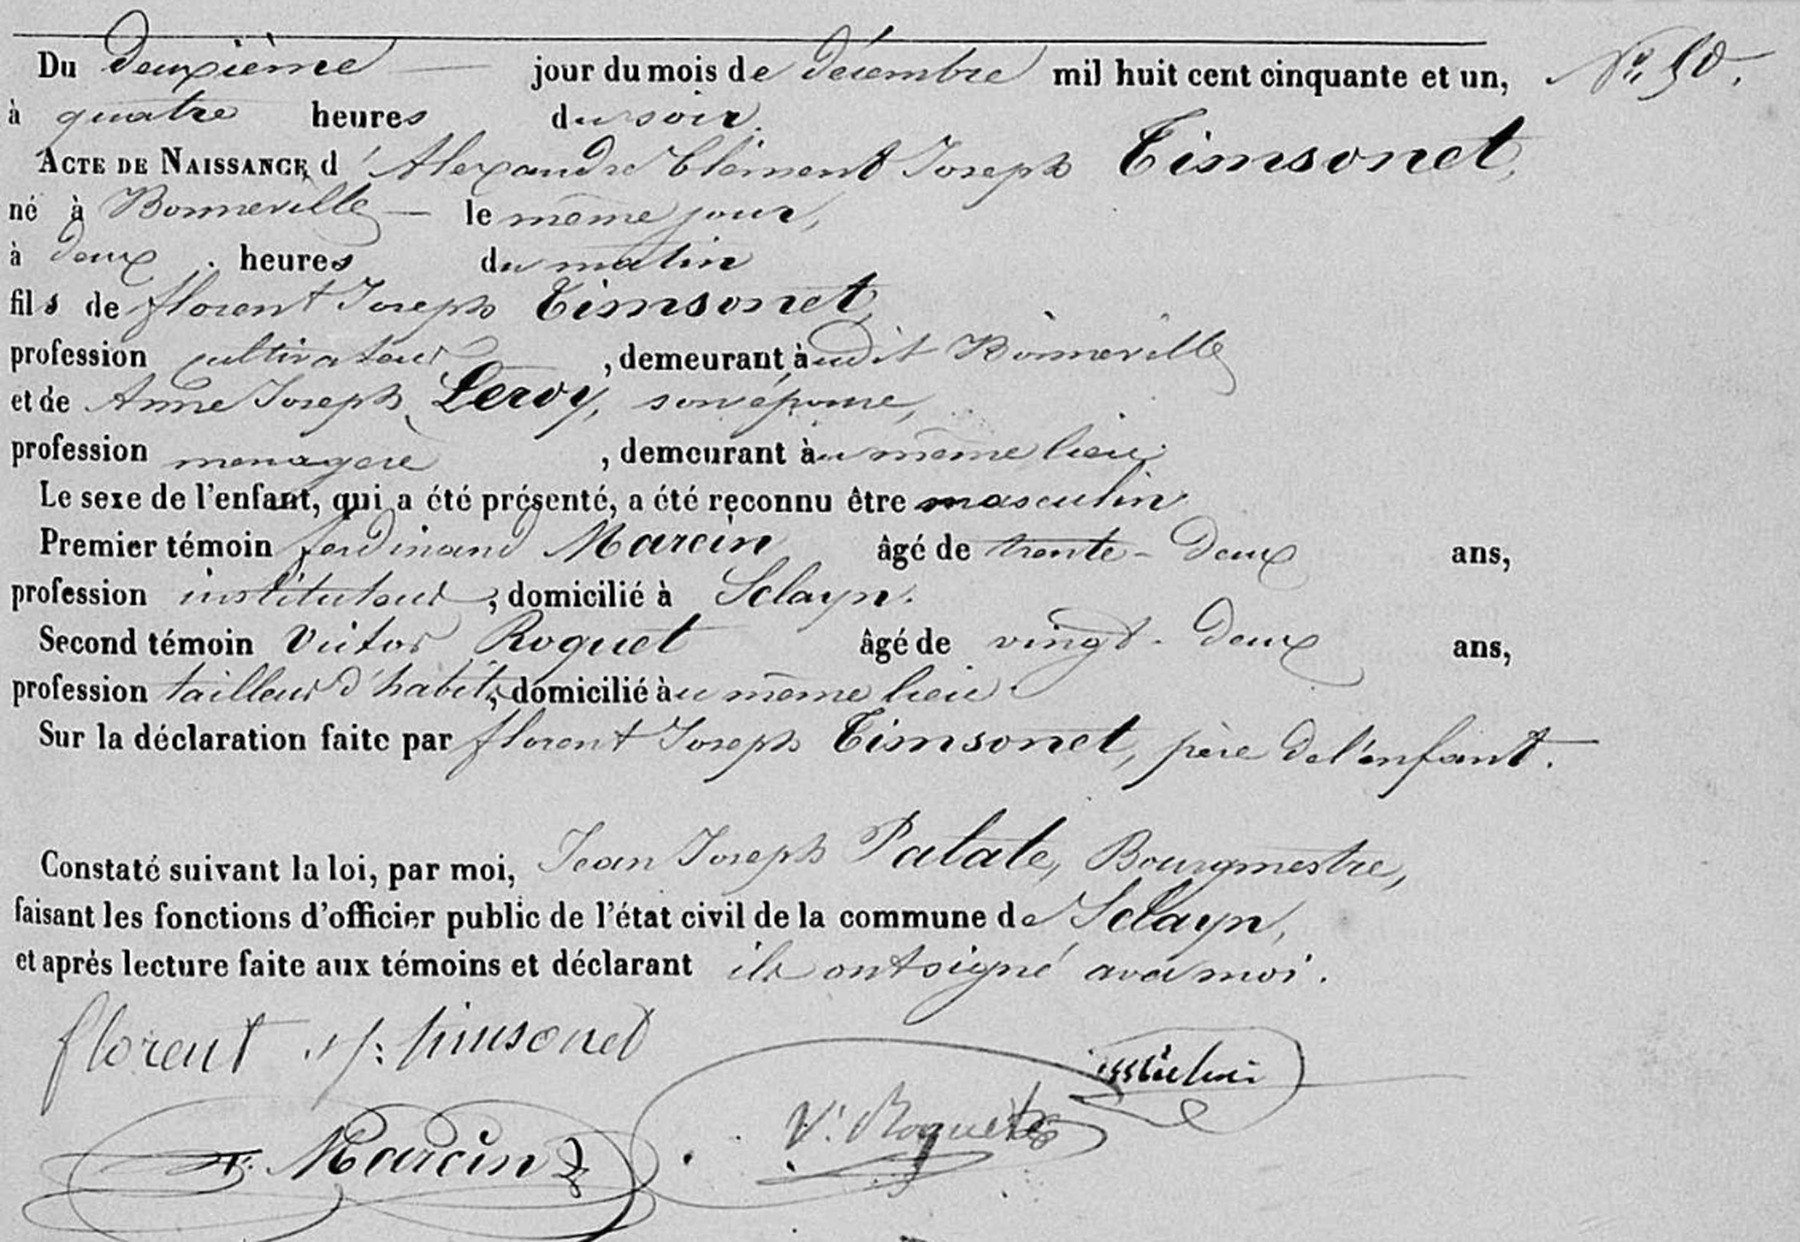 Du deuxième jour du mois de décembre mil huit cent cinquante et un, N° 50.
à quatre heures du soir.
ACTE DE NAISSANCE d'Alexandre Clément Joseph Timsonet,
né à Bonneville le même jour,
à deux heures du matin
fils de florent Joseph Timsonet,
profession cultivateur, demeurant audit Bonneville
et de Anne Joseph Leroy, son épouse,
profession menagère, demeurant au même lieu.
Le sexe de l'enfant, qui a été présenté, a été reconnu être masculin
Premier témoin ferdinand Marcin âgé de trente-deux ans,
profession instituteur, domicilié à Sclayn.
Second témoin Victor Roquet âgé de vingt-deux ans,
profession tailleur d'habits, domicilié au même lieu.
Sur la déclaration faite par florent Joseph Timsonet, père de l'enfant.
Constaté suivant la loi, par moi, Jean Joseph Patate, Bourgmestre,
faisant les fonctions d'officier public de l'état civil de la commune de Sclayn,
et après lecture faite aux témoins et déclarant ils ont signé avec moi.
florent j: timsonet
V. Roquet
F. Marcin